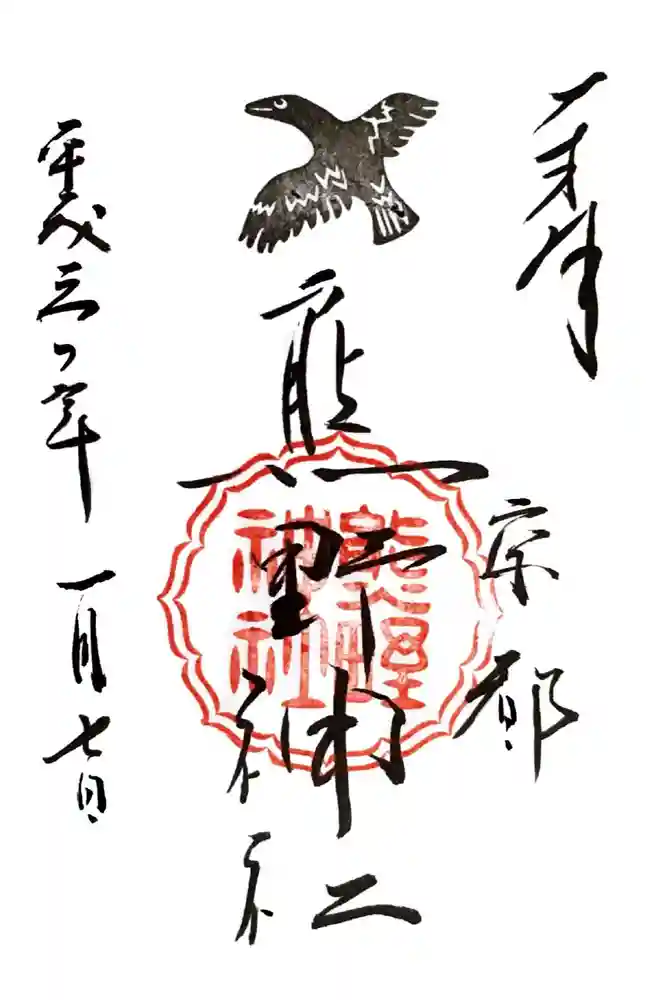 奉拝
京都
熊野神社
熊野
神社
平成三〇年一月七日